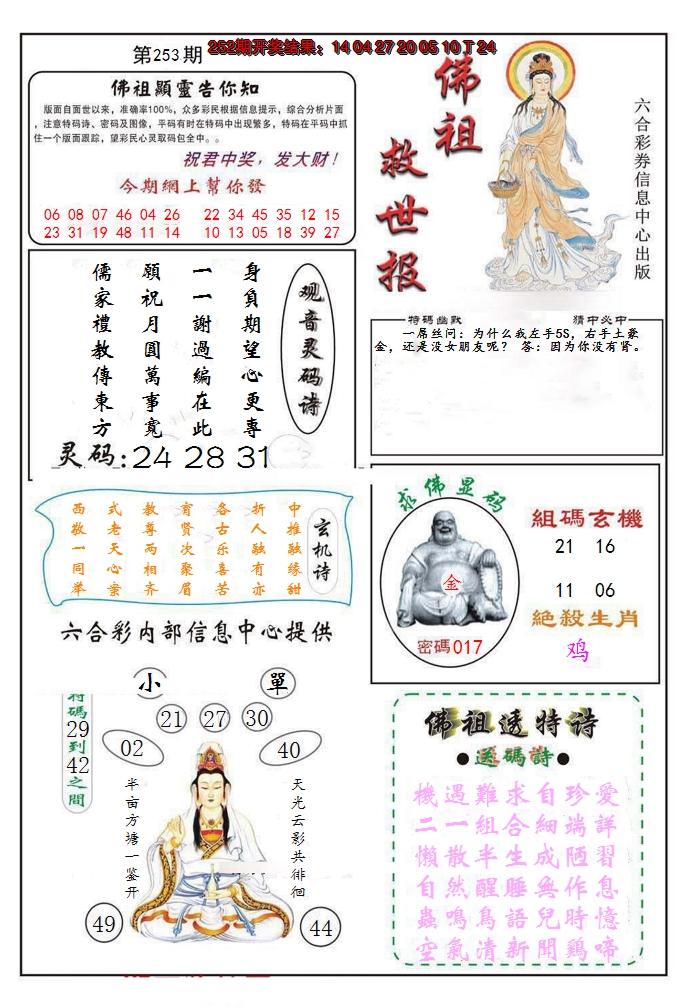 第253期
252期开奖结果：14 04 27 20 05 10 T 24
佛祖顯靈告你知
版面自面世以来，准确率100%，众多彩民根据信息提示，综合分析片面
，注意特码诗、密码及图像，平码有时在特码中出现繁多，特码在平码中抓
住一个版面跟踪，望彩民心灵取码包全中。。
祝君中奖，发大财！
今期網上幫你發
06 08 07 46 04 26 22 34 45 35 12 15
23 31 19 48 11 14 10 13 05 18 39 27
佛祖
救世报
六合彩券信息中心出版
观音灵码诗
身負期望心更專
一一謝過編在此
願祝月圓萬事寬
儒家禮教傳東方
灵码:24 28 31
特碼幽默
猜中必中
一屌丝问：为什么我左手5S，右手土豪
金，还是没女朋友呢？ 答：因为你没有肾。
玄机诗
中推融缘甜
折人融有亦
各古乐喜苦
育贤次聚眉
教尊两相齐
式老天心案
西敬一同举
六合彩内部信息中心提供
求佛显码
金
密碼017
組碼玄機
21 16
11 06
絶殺生肖
鸡
小
單
特碼29到42之間
21
27
30
02
40
天光云影共徘徊
半亩方塘一鉴开
49
44
佛祖透特诗
●送碼詩●
機遇難求自珍愛
二一組合細端詳
懶散半生成陋習
自然醒睡無作息
蟲鳴鳥語兒時憶
空氣清新聞鷄啼